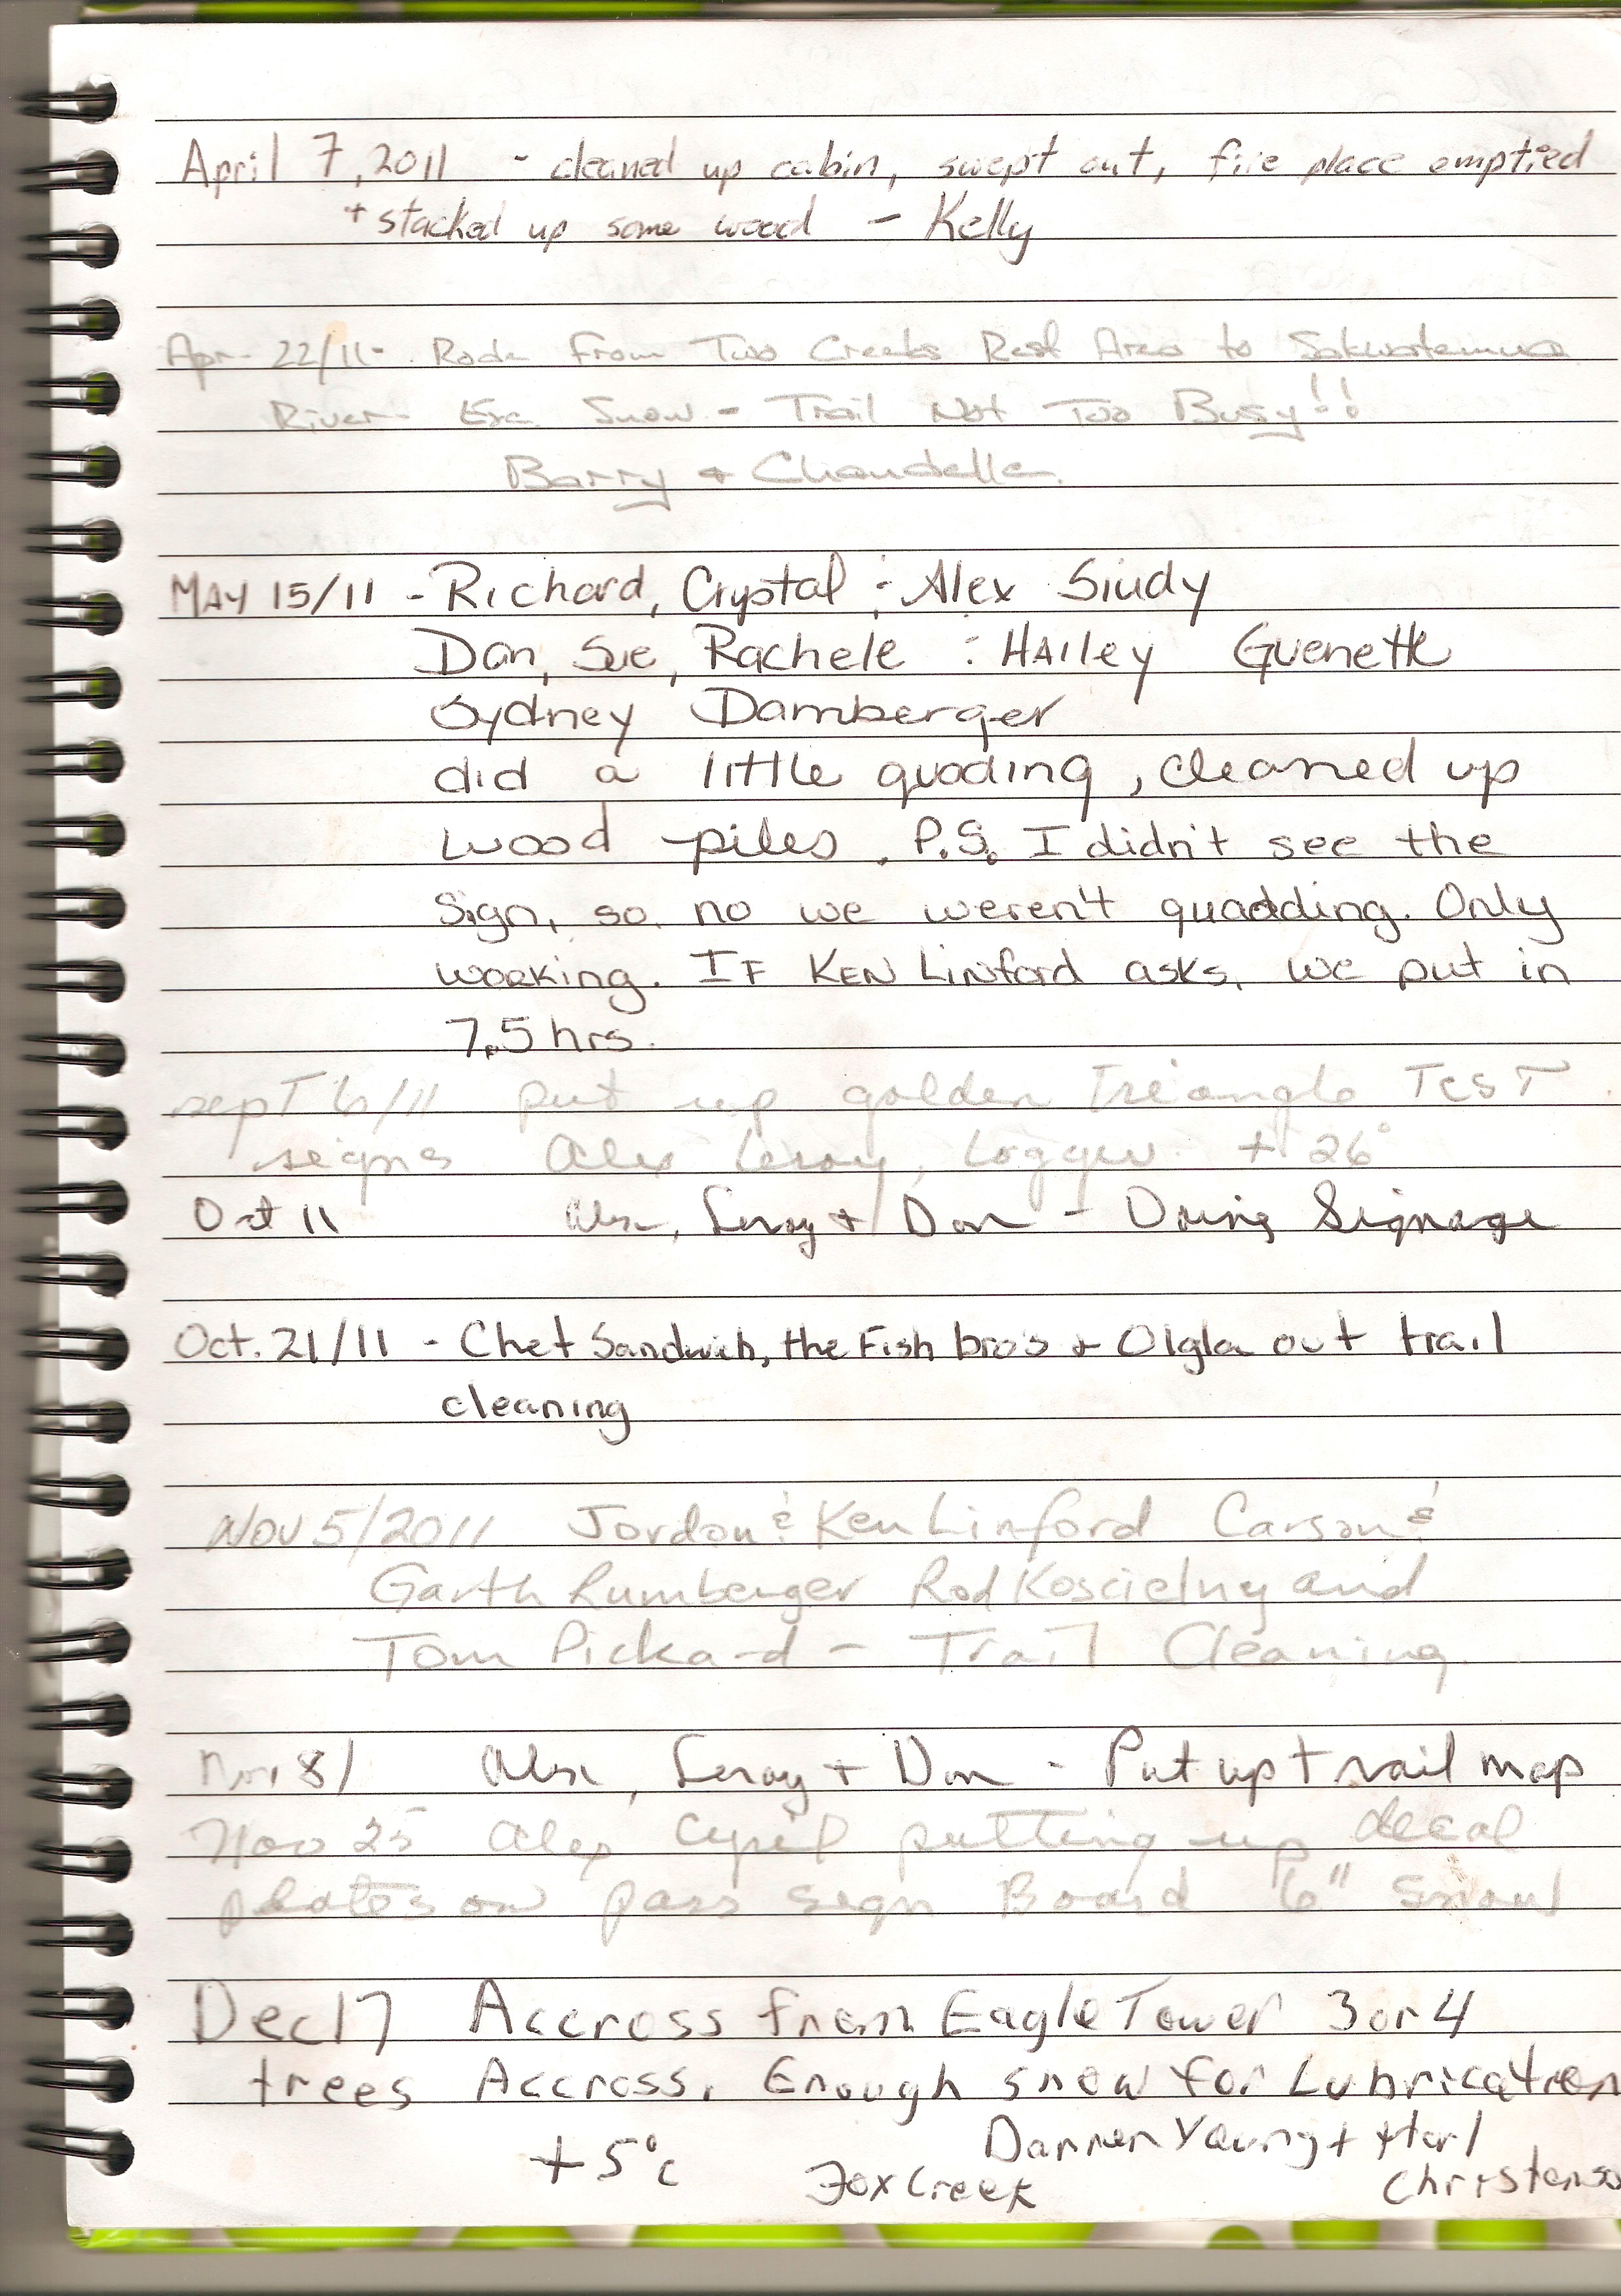 April 7, 2011 - cleaned up cabin, swept out, fire place emptied
+ stacked up some wood - Kelly
Apr 22/11 - Rode From Two Creeks Rest Area to
River Snow - Trail Not Too Busy!!
Barry + Chandelle
MAY 15/11 - Richard, Crystal : Alex Siudy
Dan, Sue, Rachele : HAiley
Sydney Damberger
did a little quading, cleaned up
wood piles. P.S. I didn't see the
Sign, so no we weren't quadding. Only
working. IF KEN LINford asks, we put in
7.5 hrs.
sept 6/11 put up golden Triangle TEST
signs Alex Leroy, +26°
Oct 11 Alex, Leroy + Don - Doing Signage
Oct. 21/11 - Chet Sandwich, the Fish bros + Olgla out trail
cleaning
NOV 5/2011 Jordon & Ken Linford Carson &
Garth Rumberger Rod Koscielny and
Tom Pickard - Trail Cleaning.
Nov 8/ Alex, Leroy + Don - Put up trail map
Nov 25 Alex Cyril putting up decal
plates on pass sign Board 6" Snow
Dec 17 Accross from Eagle Tower 3 or 4
trees Accross. Enough snow for Lubrication
+5°c Darren Young +
Fox Creek